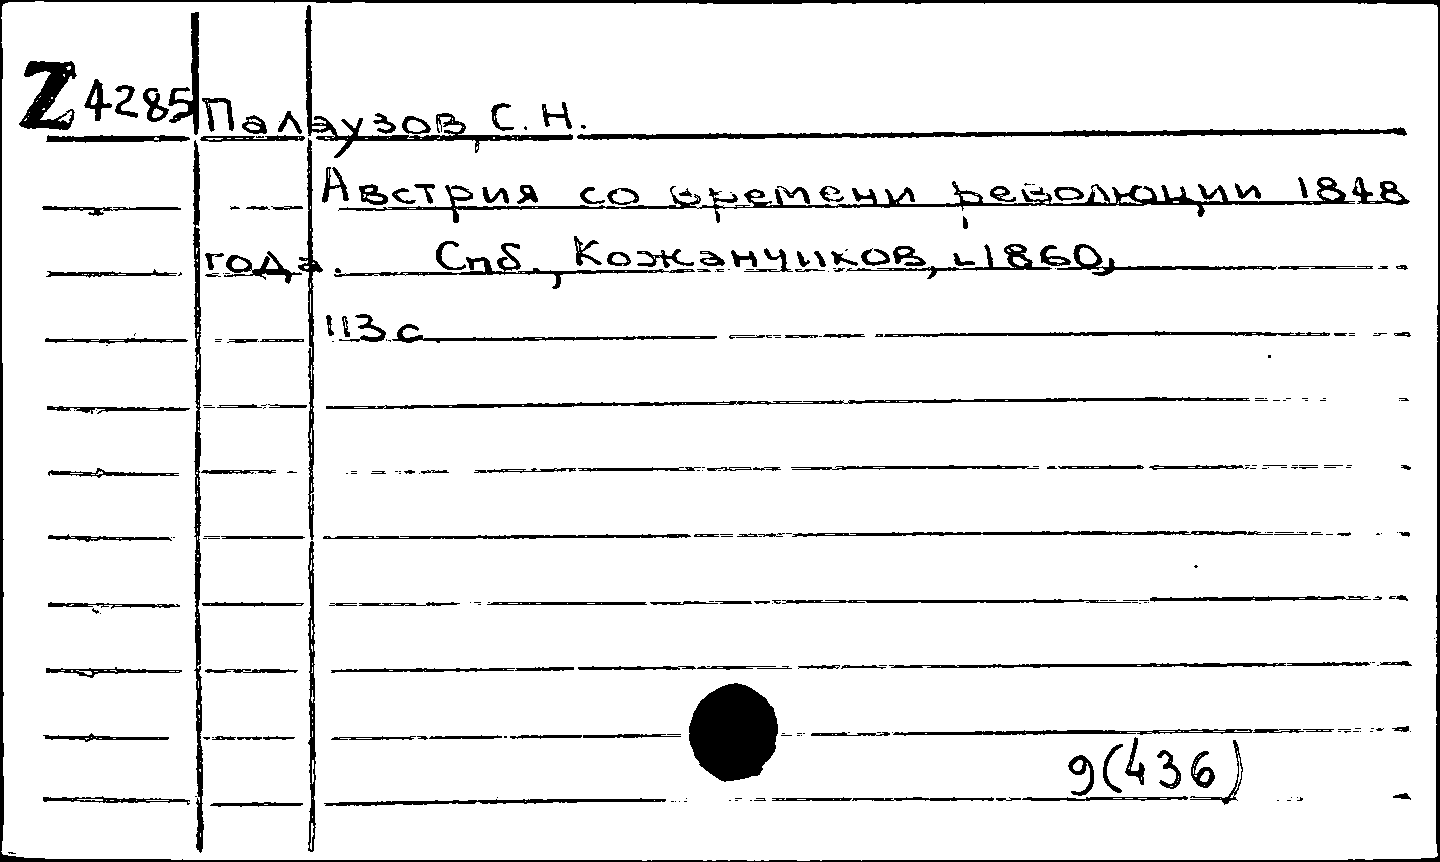 Z 4285 Палаузов, С. Н.
Австрия со времени революции 1848
года. Спб., Кожанчиков, 1860,
113 с
9(436)